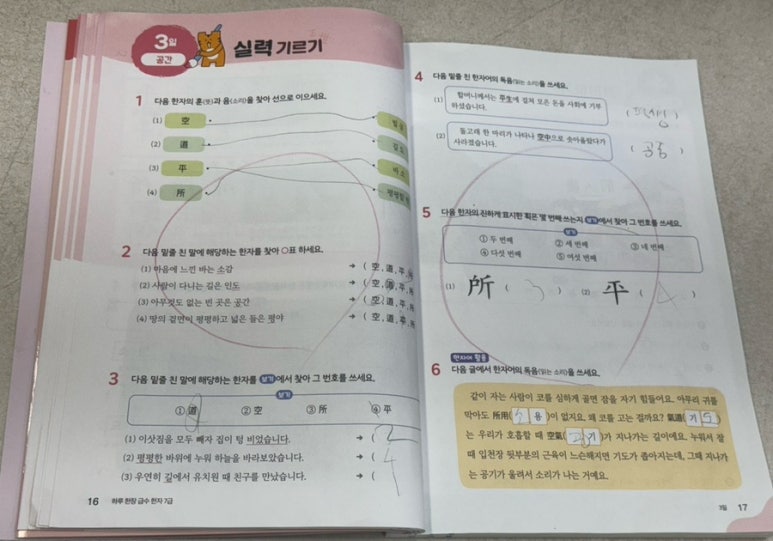 3일
공간
실력 기르기
1 다음 한자의 훈(뜻)과 음(소리)을 찾아 선으로 이으세요.
(1) 空
(2) 道
(3) 平
(4) 所
2 다음 밑줄 친 말에 해당하는 한자를 찾아 ○표 하세요.
(1) 마음에 느낀 바는 소감 → ( 空, 道, 平, 所
(2) 사람이 다니는 길은 인도 → ( 空, 道, 平,
(3) 아무것도 없는 빈 곳은 공간 → ( 空, 道, 平,
(4) 땅의 겉면이 평평하고 넓은 들은 평야 → ( 空, 道, 平, 所
3 다음 밑줄 친 말에 해당하는 한자를 보기에서 찾아 그 번호를 쓰세요.
보기
① 道 ② 空 ③ 所 ④ 平
(1) 이삿짐을 모두 빼자 집이 텅 비었습니다. → ( 2
(2) 평평한 바위에 누워 하늘을 바라보았습니다. → ( 4
(3) 우연히 길에서 유치원 때 친구를 만났습니다. → (
16 하루 한장 급수 한자 7급
4 다음 밑줄 친 한자어의 독음(읽는 소리)을 쓰세요.
(1) 할머니께서는 平生에 걸쳐 모은 돈을 사회에 기부
하셨습니다.
( 평생 )
(2) 돌고래 한 마리가 나타나 空中으로 솟아올랐다가
사라졌습니다.
( 공중 )
5 다음 한자의 진하게 표시한 획은 몇 번째 쓰는지 보기에서 찾아 그 번호를 쓰세요.
보기
① 두 번째 ② 세 번째 ③ 네 번째
④ 다섯 번째 ⑤ 여섯 번째
(1) 所 ( 3 ) (2) 平 ( 4 )
한자어 활용
6 다음 글에서 한자어의 독음(읽는 소리)을 쓰세요.
같이 자는 사람이 코를 심하게 골면 잠을 자기 힘들어요. 아무리 귀를
막아도 所用( 소 용 )이 없지요. 왜 코를 고는 걸까요? 氣道( 기 도 )
는 우리가 호흡할 때 空氣( 공 기 )가 지나가는 길이에요. 누워서 잘
때 입천장 뒷부분의 근육이 느슨해지면 기도가 좁아지는데, 그때 지나가
는 공기가 울려서 소리가 나는 거예요.
3일 17